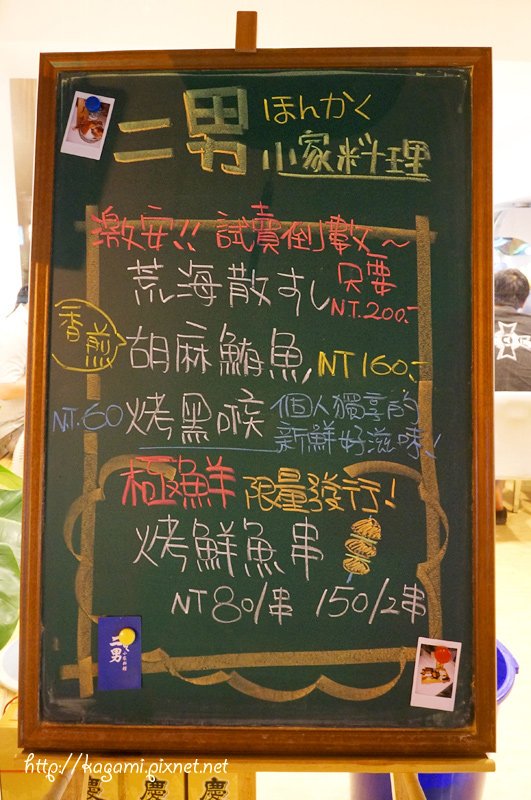 二男 ほんかく
小家料理
激安!! 試賣倒數~
荒海散すし 只要
NT.200.-
香煎 胡麻鮪魚 NT 160.-
NT.60 烤黑喉 個人獨享的
新鮮好滋味!
極鮮 限量發行!
烤鮮魚串
NT 80/串 150/2串
二男
http://kagami.pixnet.net
慶 慶 慶